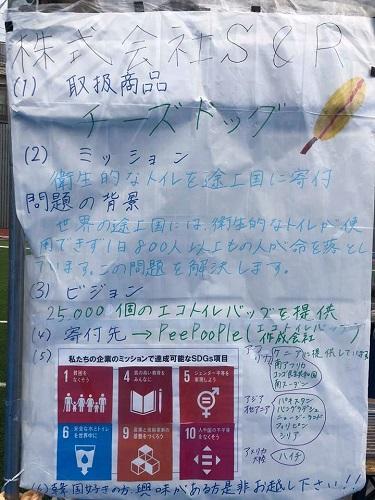 株式会社S&R
(1) 取扱商品
チーズドッグ
(2) ミッション
衛生的なトイレを途上国に寄付
問題の背景
世界の途上国には、衛生的なトイレが使
用できず1日800人以上もの人が命を落とし
ています。この問題を解決します。
(3) ビジョン
25,000個のエコトイレバッグを提供
(4) 寄付先→PeePooPle(エコトイレバッグ
作成会社)
(5)
私たちの企業のミッションで達成可能なSDGs項目
1 貧困を
なくそう
4 質の高い教育を
みんなに
5 ジェンダー平等を
実現しよう
6 安全な水とトイレ
を世界中に
9 産業と技術革新の
基盤をつくろう
10 人や国の不平等
をなくそう
アフリカ
ケニアに提供している
南アフリカ
コンゴ民主共和国
南スーダン
アジア
パキスタン
バングラデシュ
ニュージーランド
フィリピン
シリア
アメリカ
大陸
ハイチ
韓国好きの方、興味がある方是非お越し下さい!!